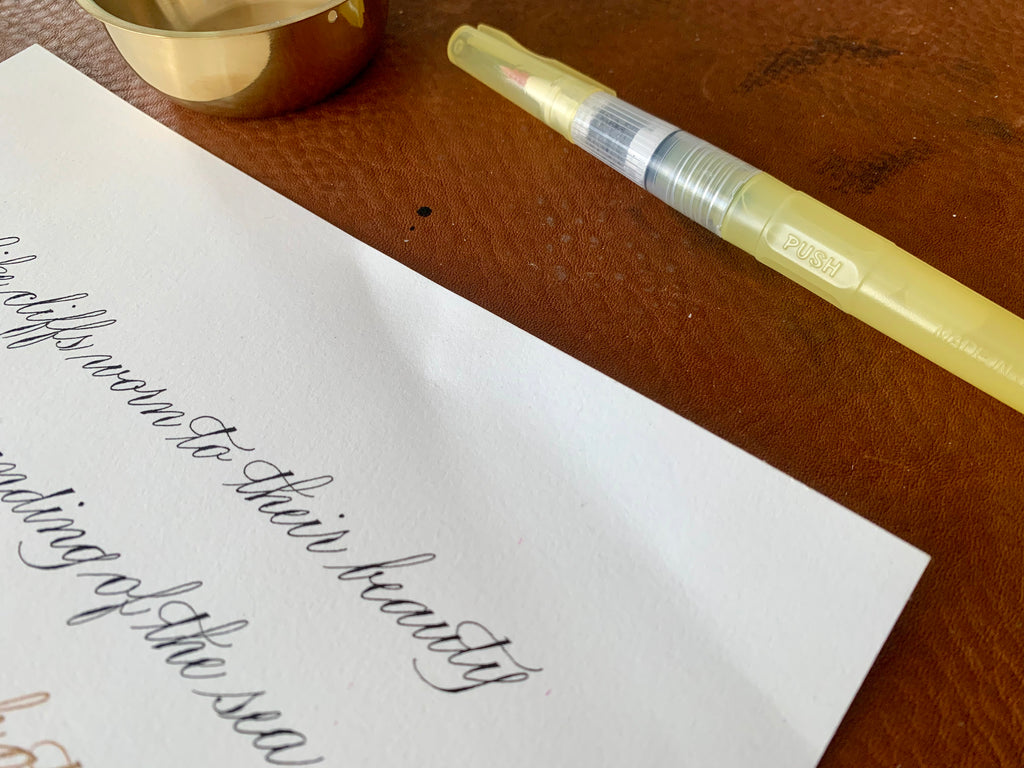 like cliffs worn to their beauty
nding of the sea
PUSH
MADE IN